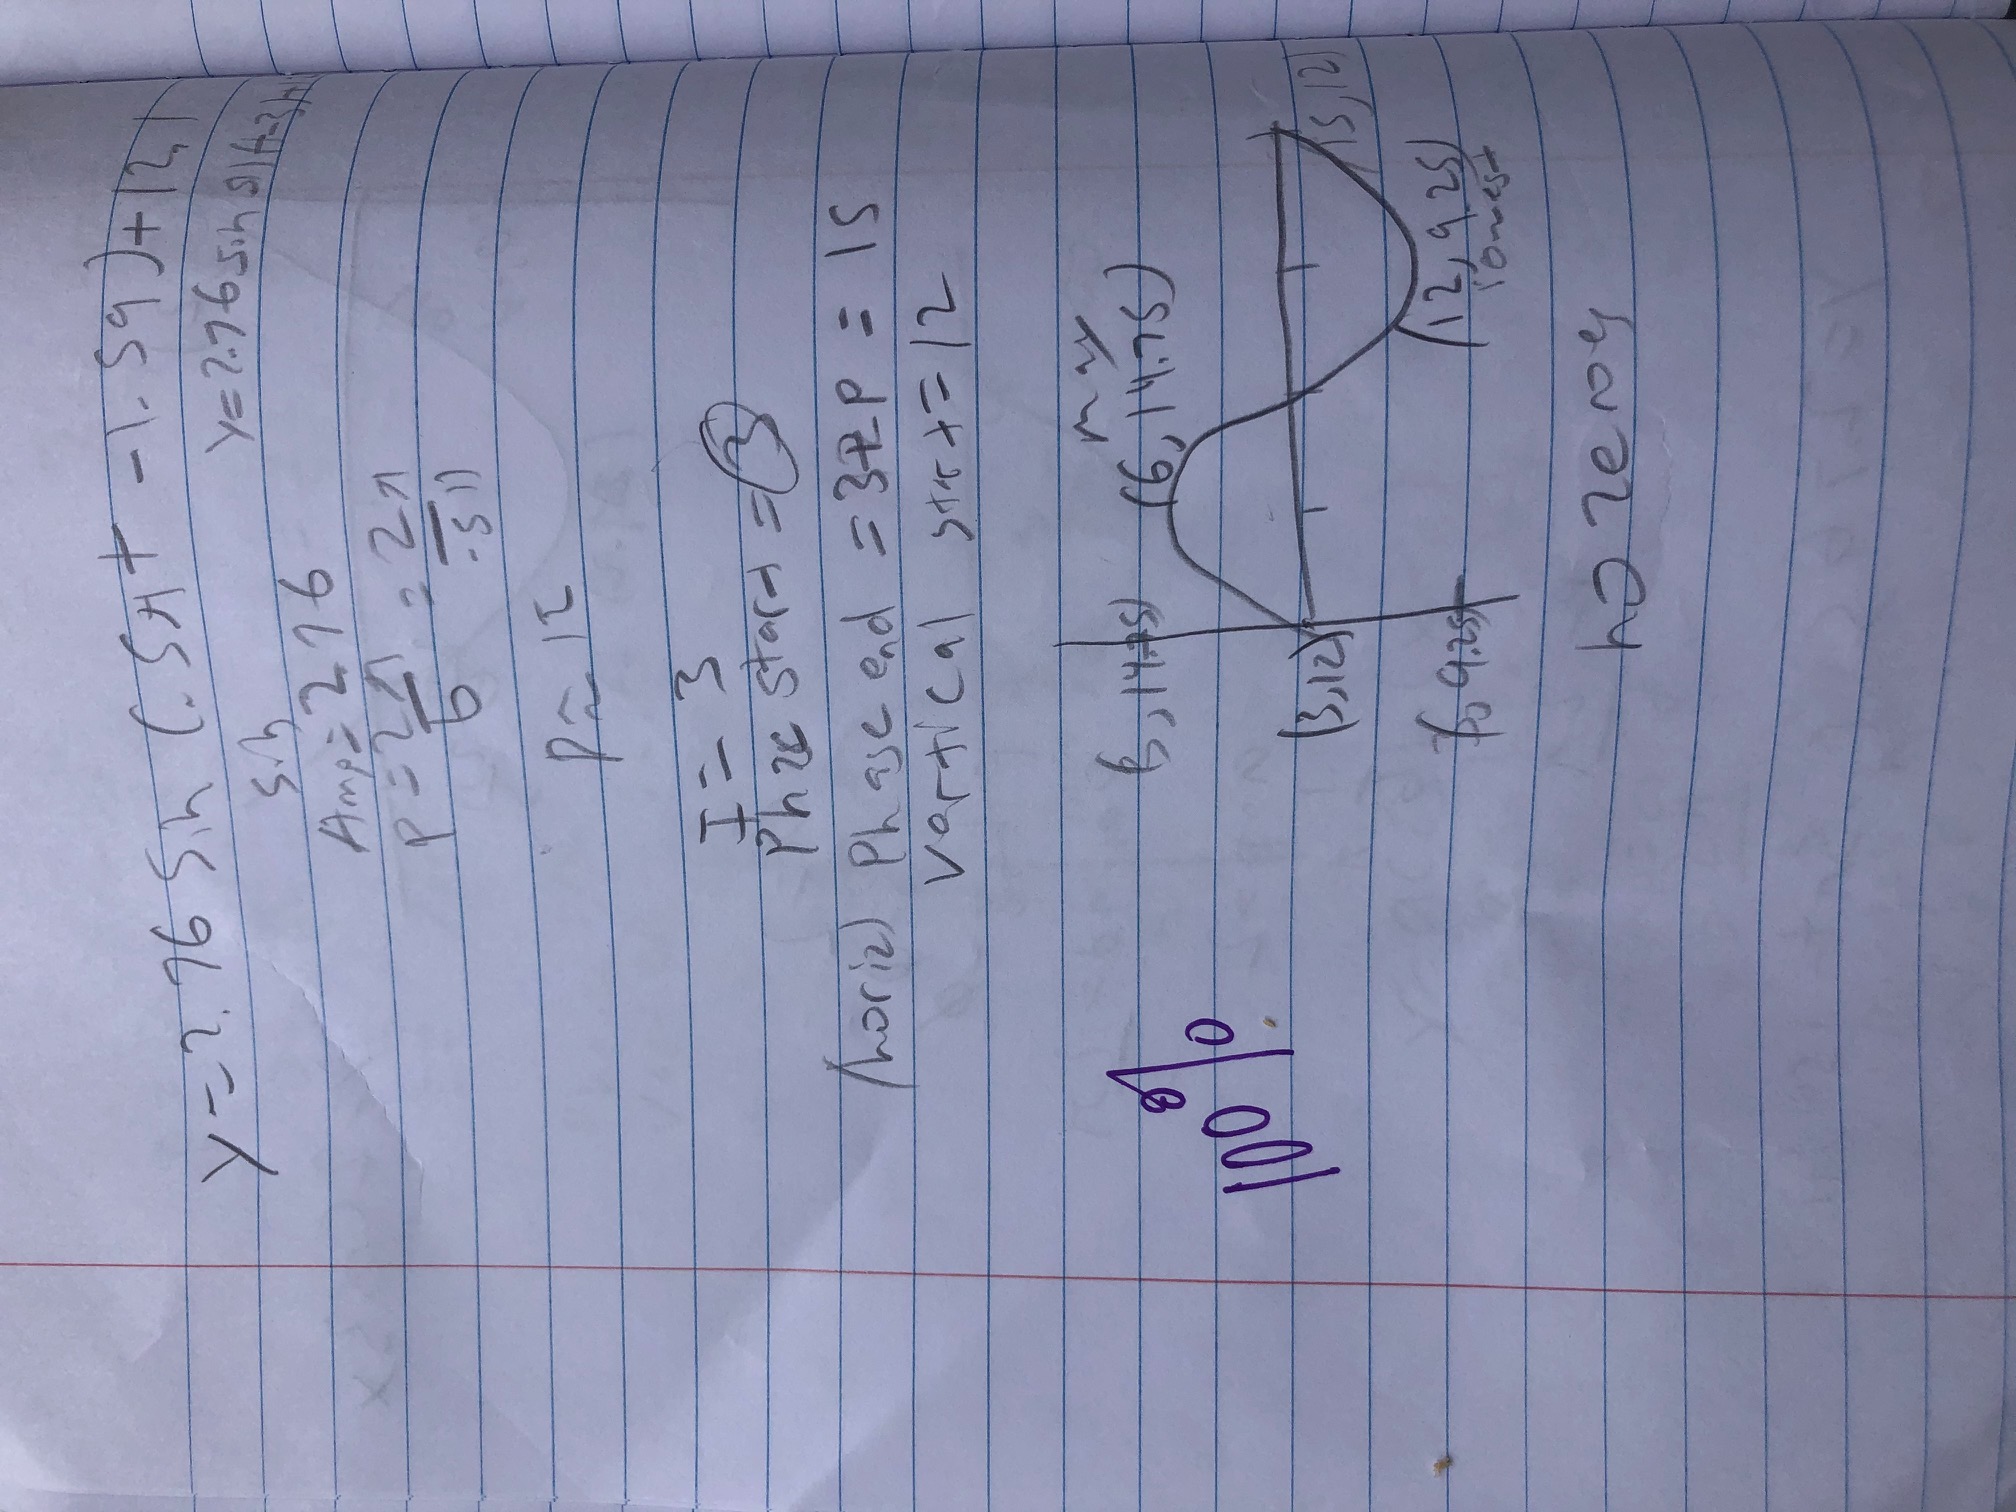 y=2.76 Sin (.51t -1.59)+12.1
y=2.76 sin .51(t-3)+1
Sin
Amp=2.76
P=2π/b = 2π/.51
P≈12
I=3
Phase start =3
(horiz) Phase end =3+P = 15
Vertical start=12
max
(3,14.75) (6,14.75)
100%
(3,12)
(15,12)
(3,9.25) (12,9.25)
lowest
no zeroes